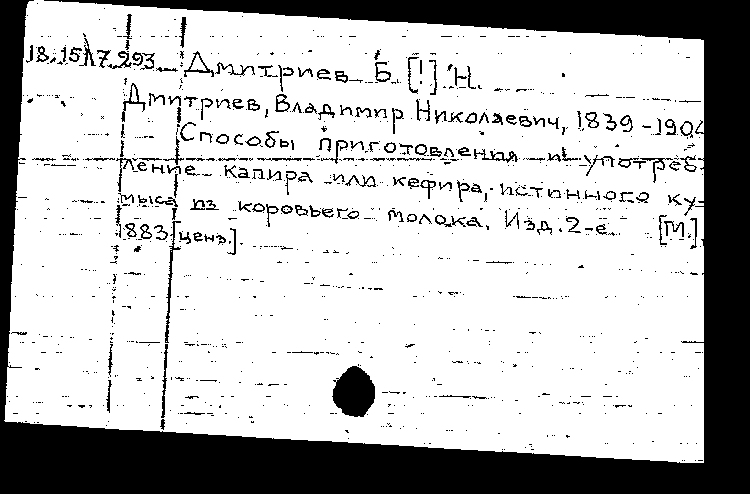 18.15.7.293 Дмитриев Б. [!] Н.
Дмитриев, Владимир Николаевич, 1839-1904
Способы приготовления и употреб-
ление капира или кефира, истинного ку-
мыса из коровьего молока. Изд. 2-е. [М.],
1883 [ценз.].